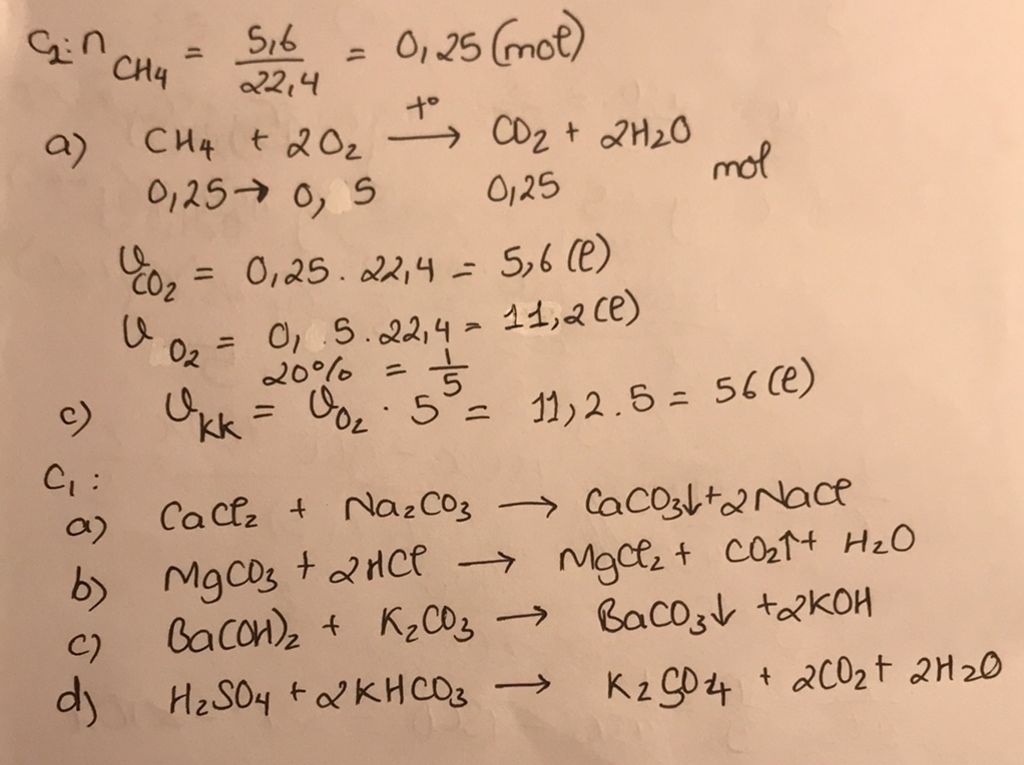 C₂: n CH₄ = 5,6/22,4 = 0,25 (mol)
a) CH₄ + 2O₂ —t°→ CO₂ + 2H₂O
0,25 → 0, 5 0,25 mol
V CO₂ = 0,25 . 22,4 = 5,6 (l)
V O₂ = 0, 5 . 22,4 = 11,2 (l)
20% = 1/5
c) V kk = V O₂ . 5 = 11,2 . 5 = 56 (l)
C₁ :
a) CaCl₂ + Na₂CO₃ → CaCO₃↓ + 2NaCl
b) MgCO₃ + 2HCl → MgCl₂ + CO₂↑ + H₂O
c) Ba(OH)₂ + K₂CO₃ → BaCO₃↓ + 2KOH
d) H₂SO₄ + 2KHCO₃ → K₂SO₄ + 2CO₂ + 2H₂O